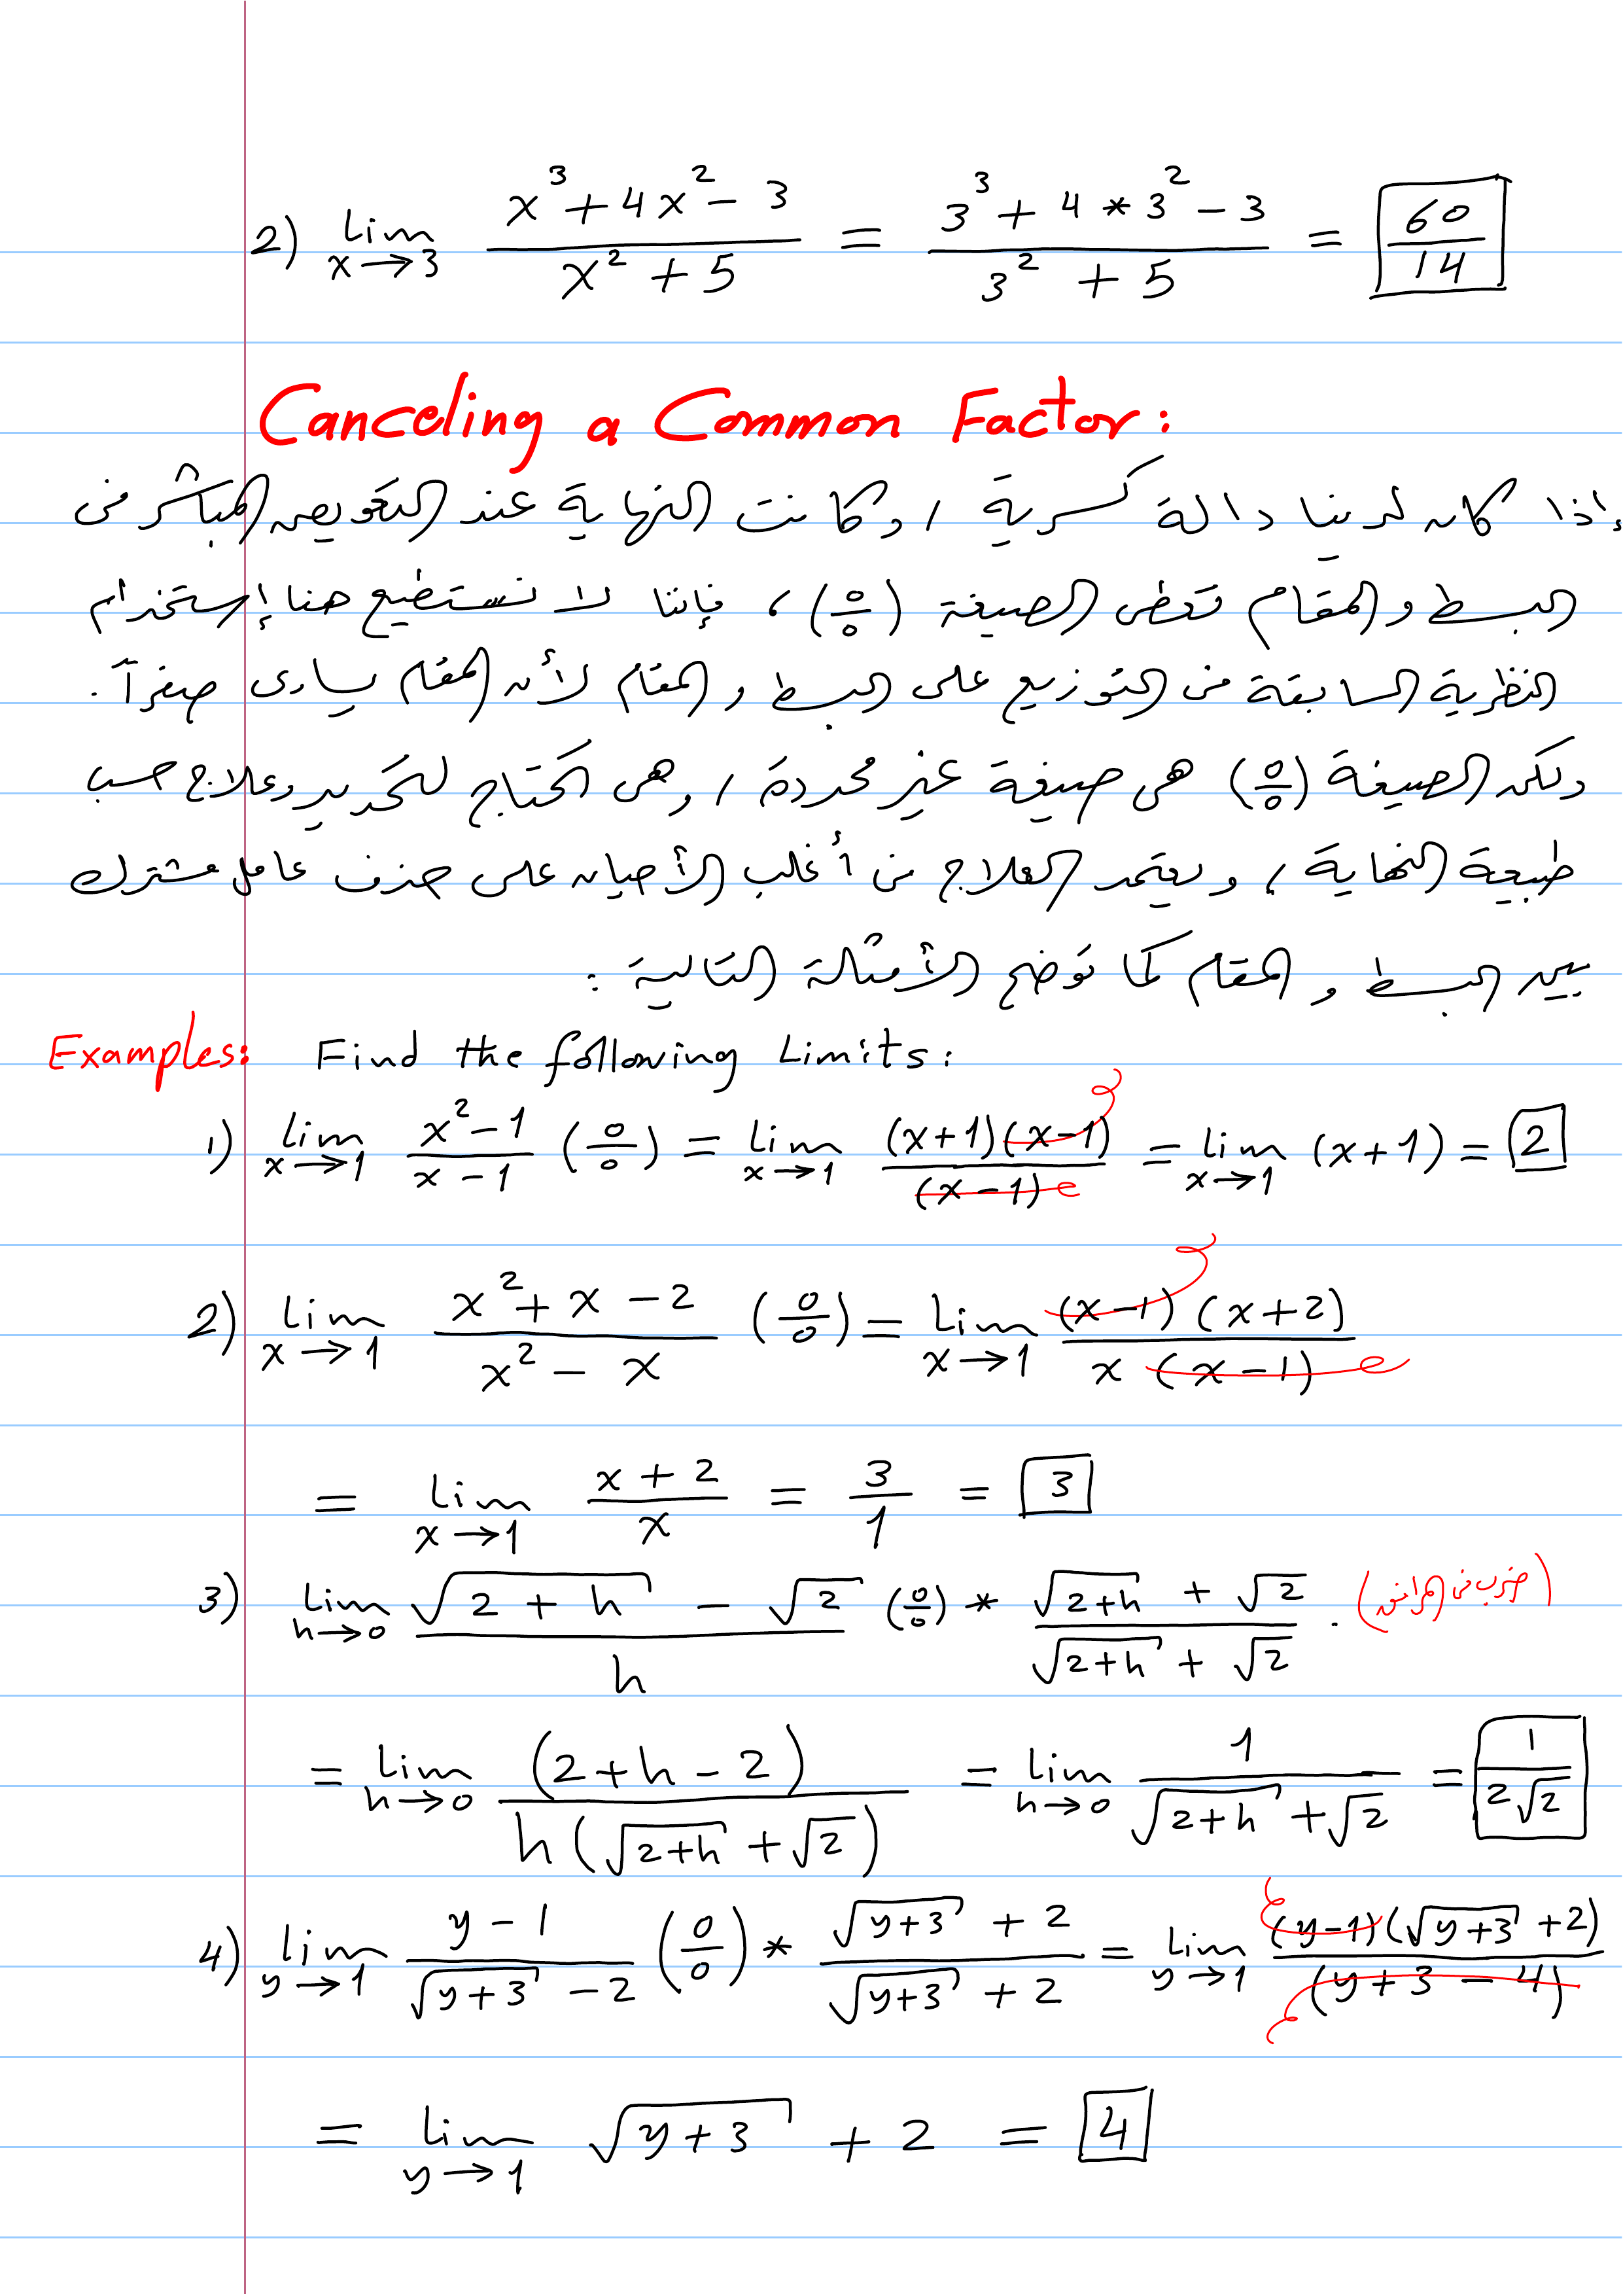 2) lim x→3 (x³ + 4x² - 3)/(x² + 5) = (3³ + 4 * 3² - 3)/(3² + 5) = 60/14
Canceling a Common Factor:
إذا كان لدينا دالة كسرية ، وكانت النهاية عند التعويض المباشر في
البسط والمقام تعطى الصيغة (0/0) ، فإننا لا نستطيع هنا إستخدام
النظرية السابقة في التوزيع على البسط والمقام لأن المقام يساوى صفراً .
ولكن الصيغة (0/0) هى صيغة غير محددة ، وهى تحتاج لتحديد وعلاج حسب
طبيعة النهاية ، ويعتمد العلاج في أغلب الأحيان على حذف عامل مشترك
بين البسط والمقام كما توضح الأمثلة التالية :
Examples: Find the following Limits:
1) lim x→1 (x² - 1)/(x - 1) (0/0) = lim x→1 (x+1)(x-1)/(x-1) = lim x→1 (x+1) = 2
2) lim x→1 (x² + x - 2)/(x² - x) (0/0) = lim x→1 (x-1)(x+2)/x(x-1)
= lim x→1 (x+2)/x = 3/1 = 3
3) lim h→0 (√(2+h) - √2)/h (0/0) * (√(2+h) + √2)/(√(2+h) + √2) . (ضرب في المرافق)
= lim h→0 (2+h-2)/h(√(2+h) + √2) = lim h→0 1/(√(2+h) + √2) = 1/2√2
4) lim y→1 (y-1)/(√(y+3) - 2) (0/0) * (√(y+3) + 2)/(√(y+3) + 2) = lim y→1 (y-1)(√(y+3) + 2)/(y+3-4)
= lim y→1 √(y+3) + 2 = 4